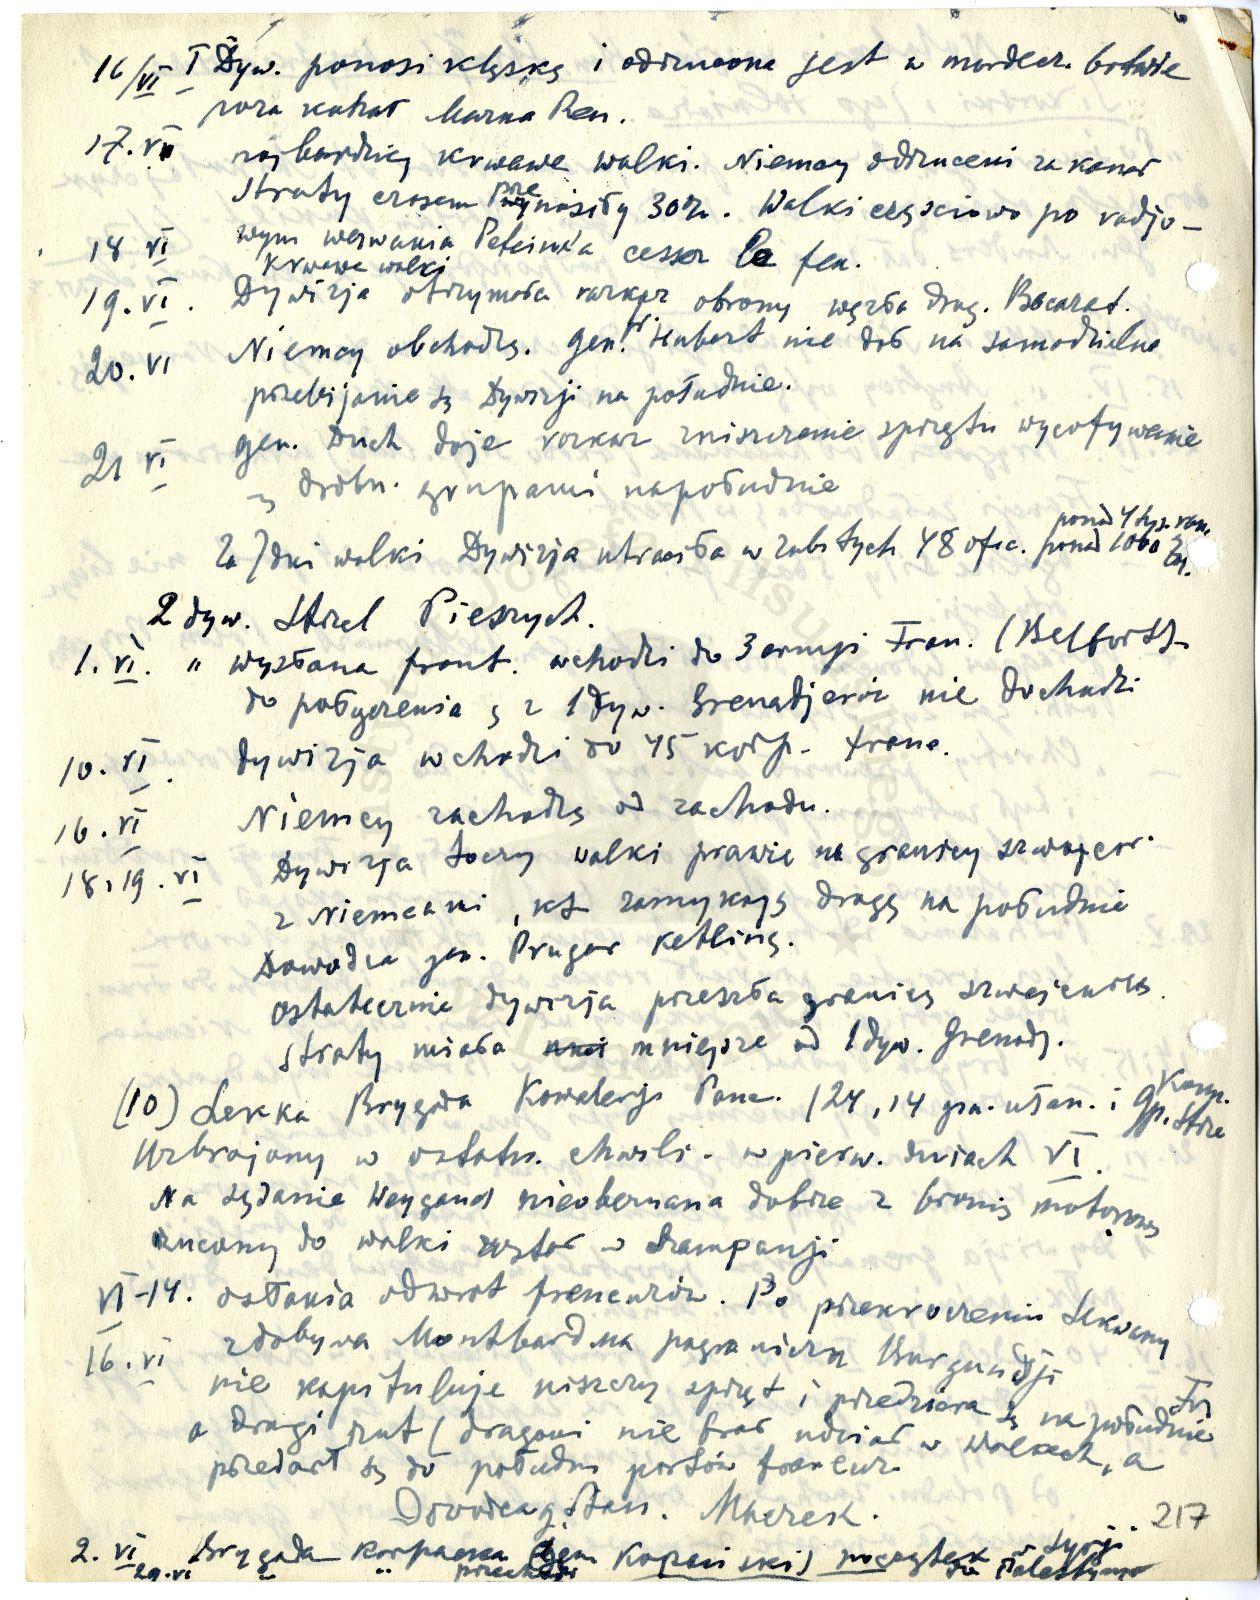 16/VI I Dyw. ponosi klęskę i odrzucona jest w morder. bitwie
poza kanał Marna Ren.
17. VI najbardziej krwawe walki. Niemcy odrzuceni za kanał
straty czasem przewynosiły 30%. Walki częściowo po radjo-
18 VI wym wezwaniu Petein'a cesser le feu.
krwawe walki
19. VI. Dywizja otrzymała rozkaz obrony węzła drog. Bacarat.
20. VI Niemcy obchodzą. Gen. fr. Hubert nie dał na samodzielne
przebijanie się Dywizji na południe.
21 VI gen. Duch daje rozkaz zniszczenie sprzętu wycofywanie
się drobn. grupami na południe
Za 7 dni walki Dywizja utraciła w zabitych 48 ofic. ponad 1000 żoł.
ponad 4 tys. ran.
2 dyw. Strzel Pieszych.
1. VI. " wysłana front. wchodzi do 3 armji Fran. (Belfort)
do połączenia się z 1 Dyw. Grenadjerów nie dochodzi
10. VI. dywizja wchodzi do 45 korp. franc.
16. VI Niemcy zachodzą od zachodu.
18, 19. VI Dywizja toczy walki prawie na granicy szwajcar.
z Niemcami, kt. zamykają drogę na południe
Dowódca gen. Prugar Ketling.
ostatecznie dywizja przeszła granicę szwajcarską.
straty miała mniejsze od 1 dyw. Grenadj.
(10) Lekka Brygada Kowalerji Panc. /24, 14 pu. ułan. i Komp.
gp. Strze
Uzbrajany w ostatn. chwili. w pierw. dniach VI.
Na żądanie Weygand nieobeznana dobrze z bronią motorową
rzucony do walki został w Szampanji
VI-14. osłania odwrot francuzów. Po przekroczeniu Sekwany
16. VI zdobywa Montbard na pograniczu Burgundji
nie kapituluje niszczy sprzęt i przedziera się na południe
a drugi rzut (dragoni nie brał udział w walkach, a
przedarł się do połudn portów francuz.
Dowódca g. Stan. Maczek.
217
2. VI Brygada Karpacka (gen Kopański) początek w Syrji.
29. VI " przechodzi do Palestyny